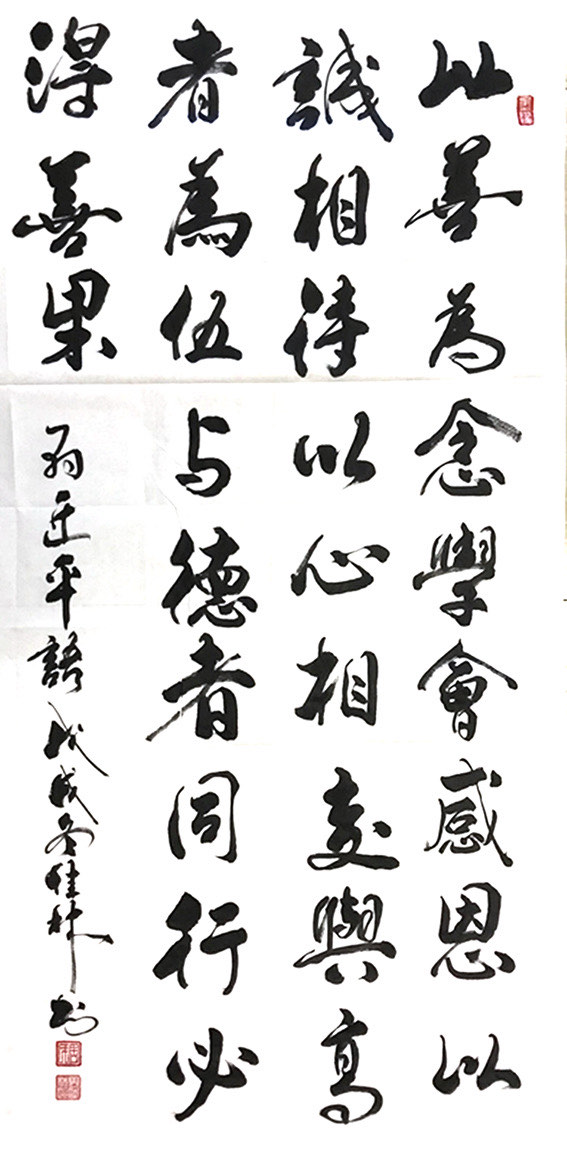 以善為念學會感恩以
誠相待以心相交與高
者為伍与德者同行必
得善果
习近平語戊戌冬佳林书